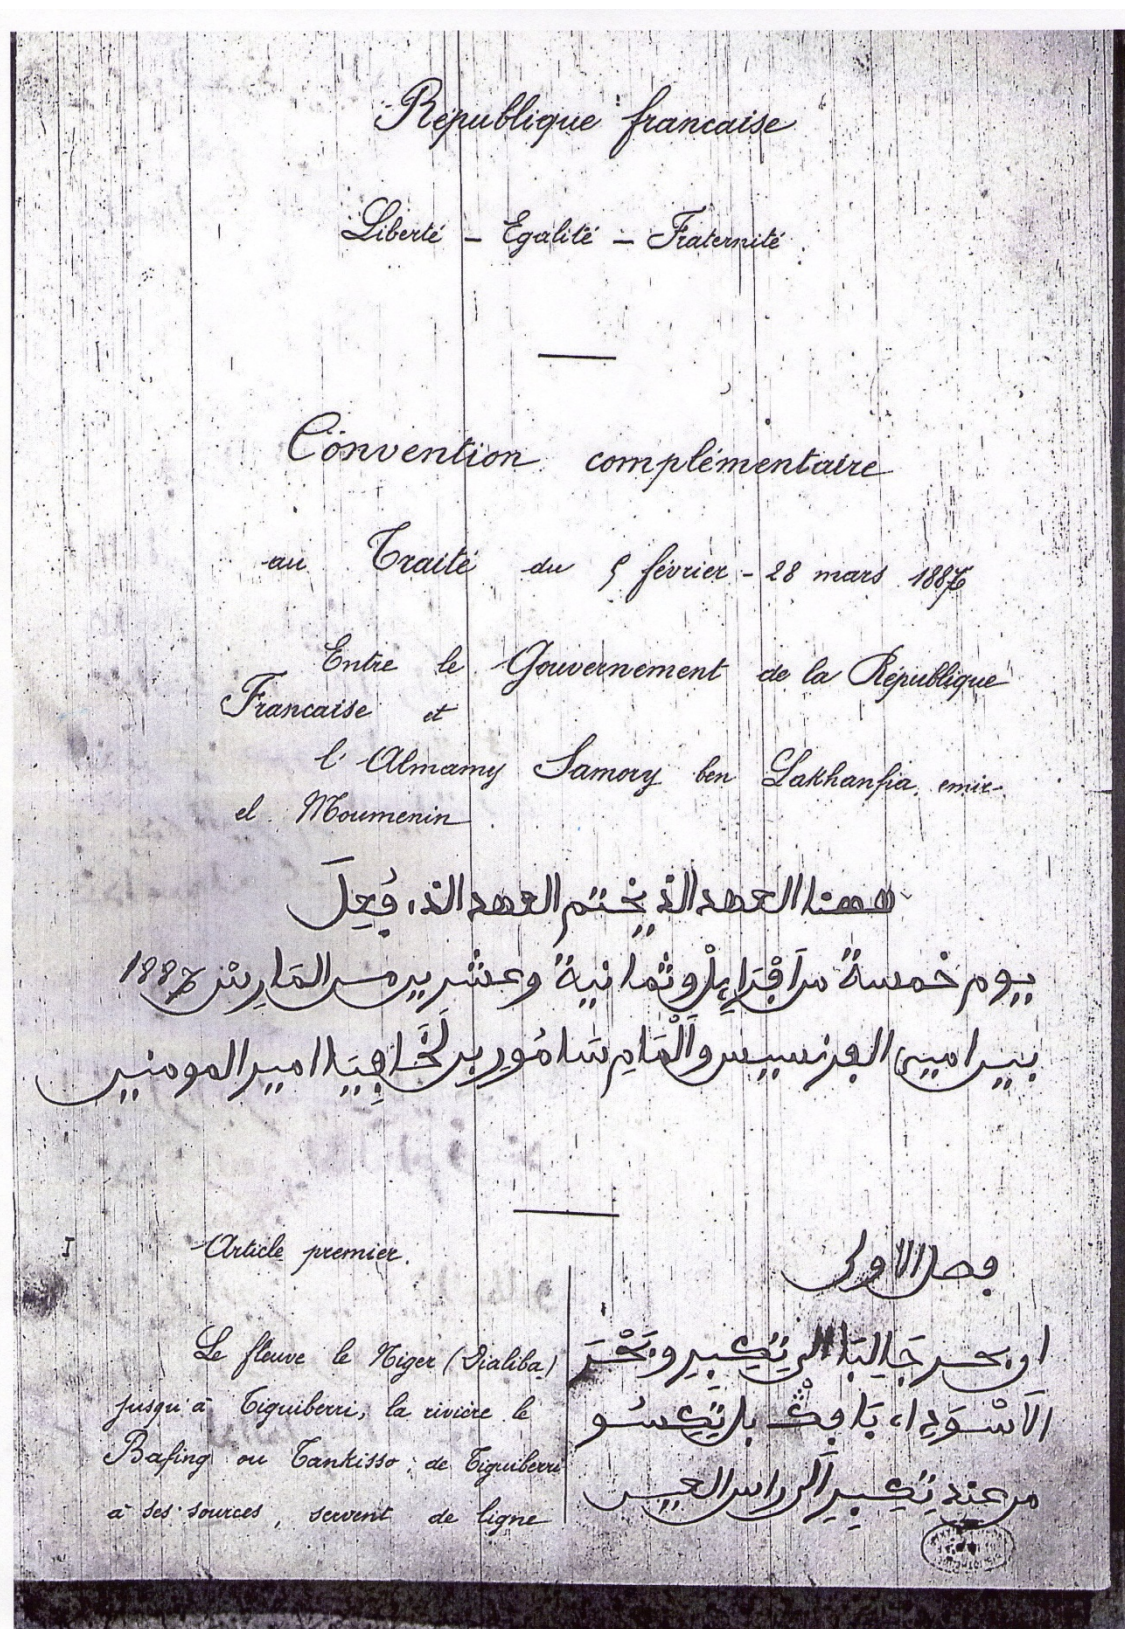 République francaise
Liberté - Egalité - Fraternité
Convention complémentaire
au Traité du 5 février - 28 mars 1887
Entre le Gouvernement de la République
Francaise et
l'Almamy Samory ben Lakhanfia, emir-
el Moumenin
العهد الذ يختم العهد الذ، فُعِلَ
يوم خمسة من افْرَايِلْ وثمانية وعشرين من المَارِسْ 1887
بين امير الفرنسيس والْمَامِ سَامُورِ بن لَخَافِيَا امير المومنين
I
Article premier.
فصل الاولى
Le fleuve le Niger (Dialiba)
jusqu'à Tiguiberri, la rivière le
Bafing ou Tankisso, de Tiguiberri
à ses sources, servent de ligne
بحر جَالِبَا الى تِكِبِيرِ وبَحْرَ
الاَسْوَدِ، بَافِنْ بل تَنْكِسُو
من عند تِكِبِيرِ الى راس العين